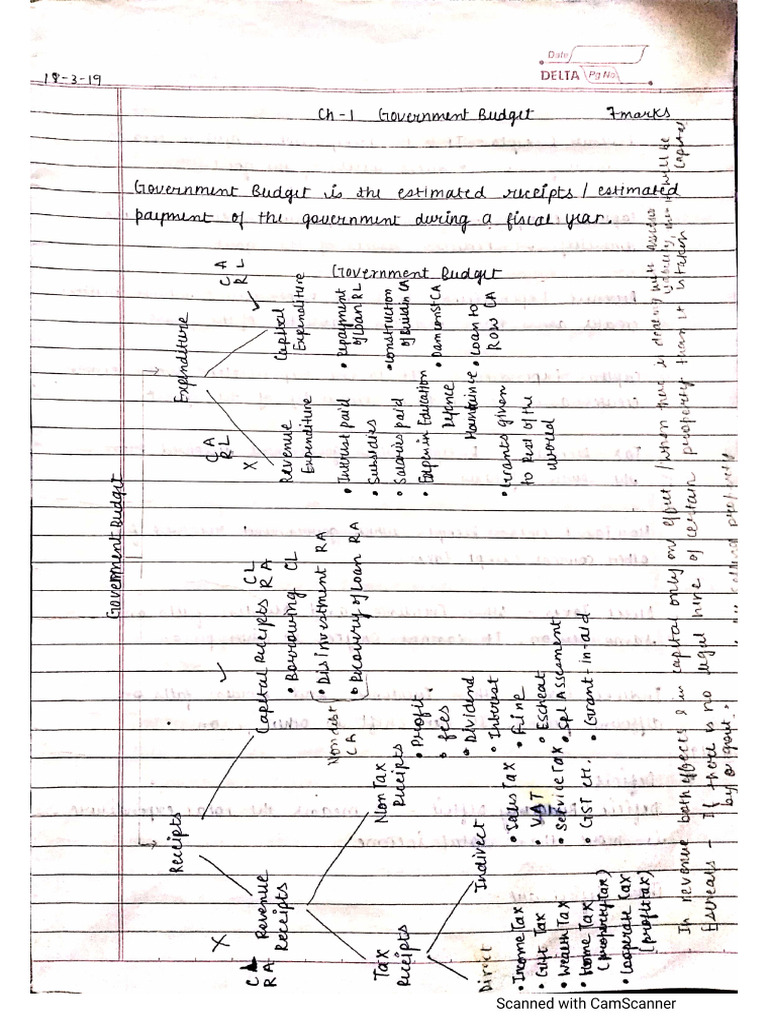 Date
DELTA Pg No
18-3-19
Ch-1 Government Budget 7marks
Government Budget is the estimated receipts / estimated
payment of the government during a fiscal year.
Government Budget
Government Budget
Receipts
Expenditure
X
CL
RA
Revenue
Receipts
✓
Capital Receipts CL
RA
• Borrowing CL
• Disinvestment RA
• Recovery of Loan RA
Non debt
CA
Tax
Receipts
Non Tax
Receipts
• Profit
• fees
• Dividend
• Interest
• Fine
• Escheat
• Spl Assesment
• Grant-in-aid
Direct
• Income Tax
• Gift Tax
• Wealth Tax
• Home Tax
(property Tax)
• Cooperate Tax
(profit tax)
Indirect
• Sales Tax
• VAT
• Service Tax
• GST etc.
CA
RL
X
Revenue
Expenditure
• Interest paid
• Subsidies
• Salaries paid
• Expen in Education
Defence
• Grants given
to Rest of the
World
CA
RL
✓
Capital
Expenditure
• Repayment
of Loan RL
• Construction
of Buildin CA
• Dam const CA
• Loan to
ROW CA
In revenue both effeces & in capital only one effect / when there is
Escheats - If there is no legal hire of certain property than it is taken
by a govt.